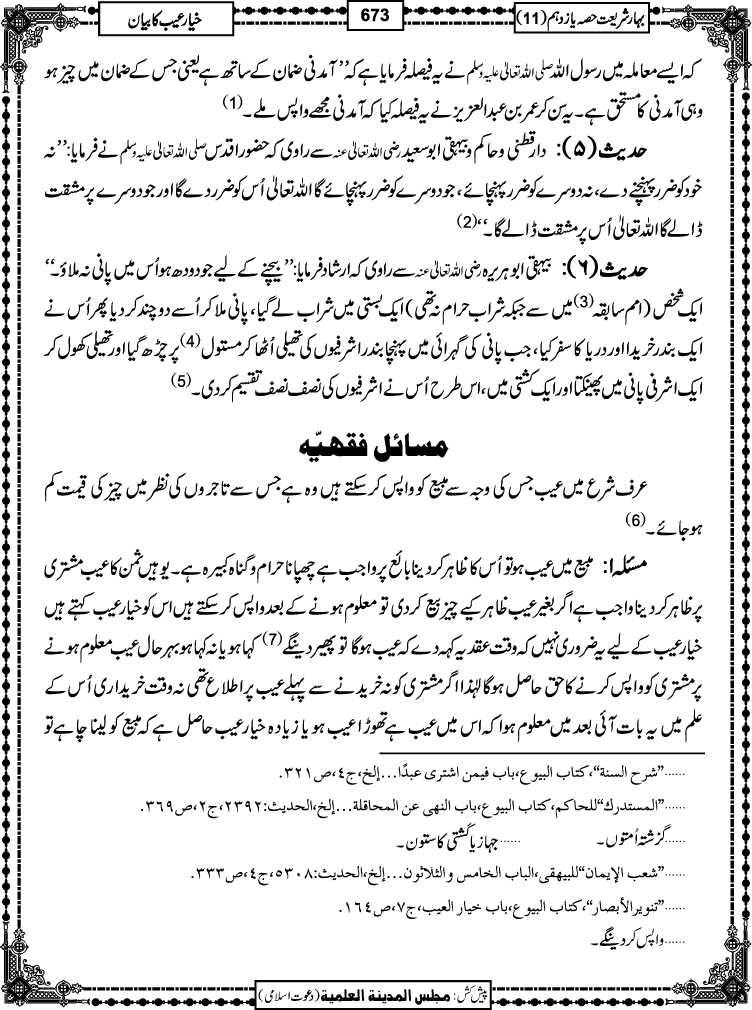 بہارِ شریعت حصہ یازدہم (11)
673
خیار عیب کا بیان
کہ ایسے معاملہ میں رسول اللہ صلی اللہ تعالیٰ علیہ وسلم نے یہ فیصلہ فرمایا ہے کہ ’’آمدنی ضمان کے ساتھ ہے یعنی جس کے ضمان میں چیز ہو
وہی آمدنی کا مستحق ہے۔ یہ سن کر عمر بن عبدالعزیز نے یہ فیصلہ کیا کہ آمدنی مجھے واپس ملے۔(1)
حدیث (۵): دارقطنی و حاکم و بیہقی ابو سعید رضی اللہ تعالیٰ عنہ سے راوی کہ حضور اقدس صلی اللہ تعالیٰ علیہ وسلم نے فرمایا: ’’نہ
خود کو ضرر پہنچنے دے، نہ دوسرے کو ضرر پہنچائے، جو دوسرے کو ضرر پہنچائے گا اللہ تعالیٰ اُس کو ضرر دے گا اور جو دوسرے پر مشقت
ڈالے گا اللہ تعالیٰ اُس پر مشقت ڈالے گا۔‘‘(2)
حدیث (۶): بیہقی ابوہریرہ رضی اللہ تعالیٰ عنہ سے راوی کہ ارشاد فرمایا: ’’بیچنے کے لیے جو دودھ ہو اُس میں پانی نہ ملاؤ۔‘‘
ایک شخص (امم سابقہ(3) میں سے جبکہ شراب حرام نہ تھی) ایک بستی میں شراب لے گیا، پانی ملا کر اُسے دوچند کر دیا پھر اُس نے
ایک بندر خریدا اور دریا کا سفر کیا، جب پانی کی گہرائی میں پہنچا بندر اشرفیوں کی تھیلی اُٹھا کر مستول(4) پر چڑھ گیا اور تھیلی کھول کر
ایک اشرفی پانی میں پھینکتا اور ایک کشتی میں، اس طرح اُس نے اشرفیوں کی نصف نصف تقسیم کر دی۔(5)
مسائل فقهيّه
عرف شرع میں عیب جس کی وجہ سے مبیع کو واپس کر سکتے ہیں وہ ہے جس سے تاجروں کی نظر میں چیز کی قیمت کم
ہو جائے۔(6)
مسئلہ ۱: مبیع میں عیب ہو تو اُس کا ظاہر کر دینا بائع پر واجب ہے چھپانا حرام و گناہ کبیرہ ہے۔ یوہیں ثمن کا عیب مشتری
پر ظاہر کر دینا واجب ہے اگر بغیر عیب ظاہر کیے چیز بیع کر دی تو معلوم ہونے کے بعد واپس کر سکتے ہیں اس کو خیار عیب کہتے ہیں
خیار عیب کے لیے یہ ضروری نہیں کہ وقت عقد یہ کہہ دے کہ عیب ہوگا تو پھیر دینگے(7) کہا ہو یا نہ کہا ہو بہر حال عیب معلوم ہونے
پر مشتری کو واپس کرنے کا حق حاصل ہوگا لہٰذا اگر مشتری کو نہ خریدنے سے پہلے عیب پر اطلاع تھی نہ وقت خریداری اُس کے
علم میں یہ بات آئی بعد میں معلوم ہوا کہ اس میں عیب ہے تھوڑا عیب ہو یا زیادہ خیار عیب حاصل ہے کہ مبیع کو لینا چاہے تو
......”شرح السنة“،کتاب البیوع،باب فیمن اشتری عبدًا...إلخ،ج٤،ص٣٢١.
......”المستدرك“للحاکم،کتاب البیوع،باب النهی عن المحاقلة...إلخ،الحدیث:٢٣٩٢،ج٢،ص٣٦٩.
......گزشتہ اُمتوں۔ ......جہاز یا کشتی کا ستون۔
......”شعب الإیمان“للبیهقی،الباب الخامس والثلاثون...إلخ،الحدیث:٥٣٠٨،ج٤،ص٣٣٣.
......”تنویر الأبصار“،کتاب البیوع،باب خیار العیب،ج٧،ص١٦٤.
......واپس کر دینگے۔
پیش کش: مجلس المدینۃ العلمیۃ (دعوت اسلامی)